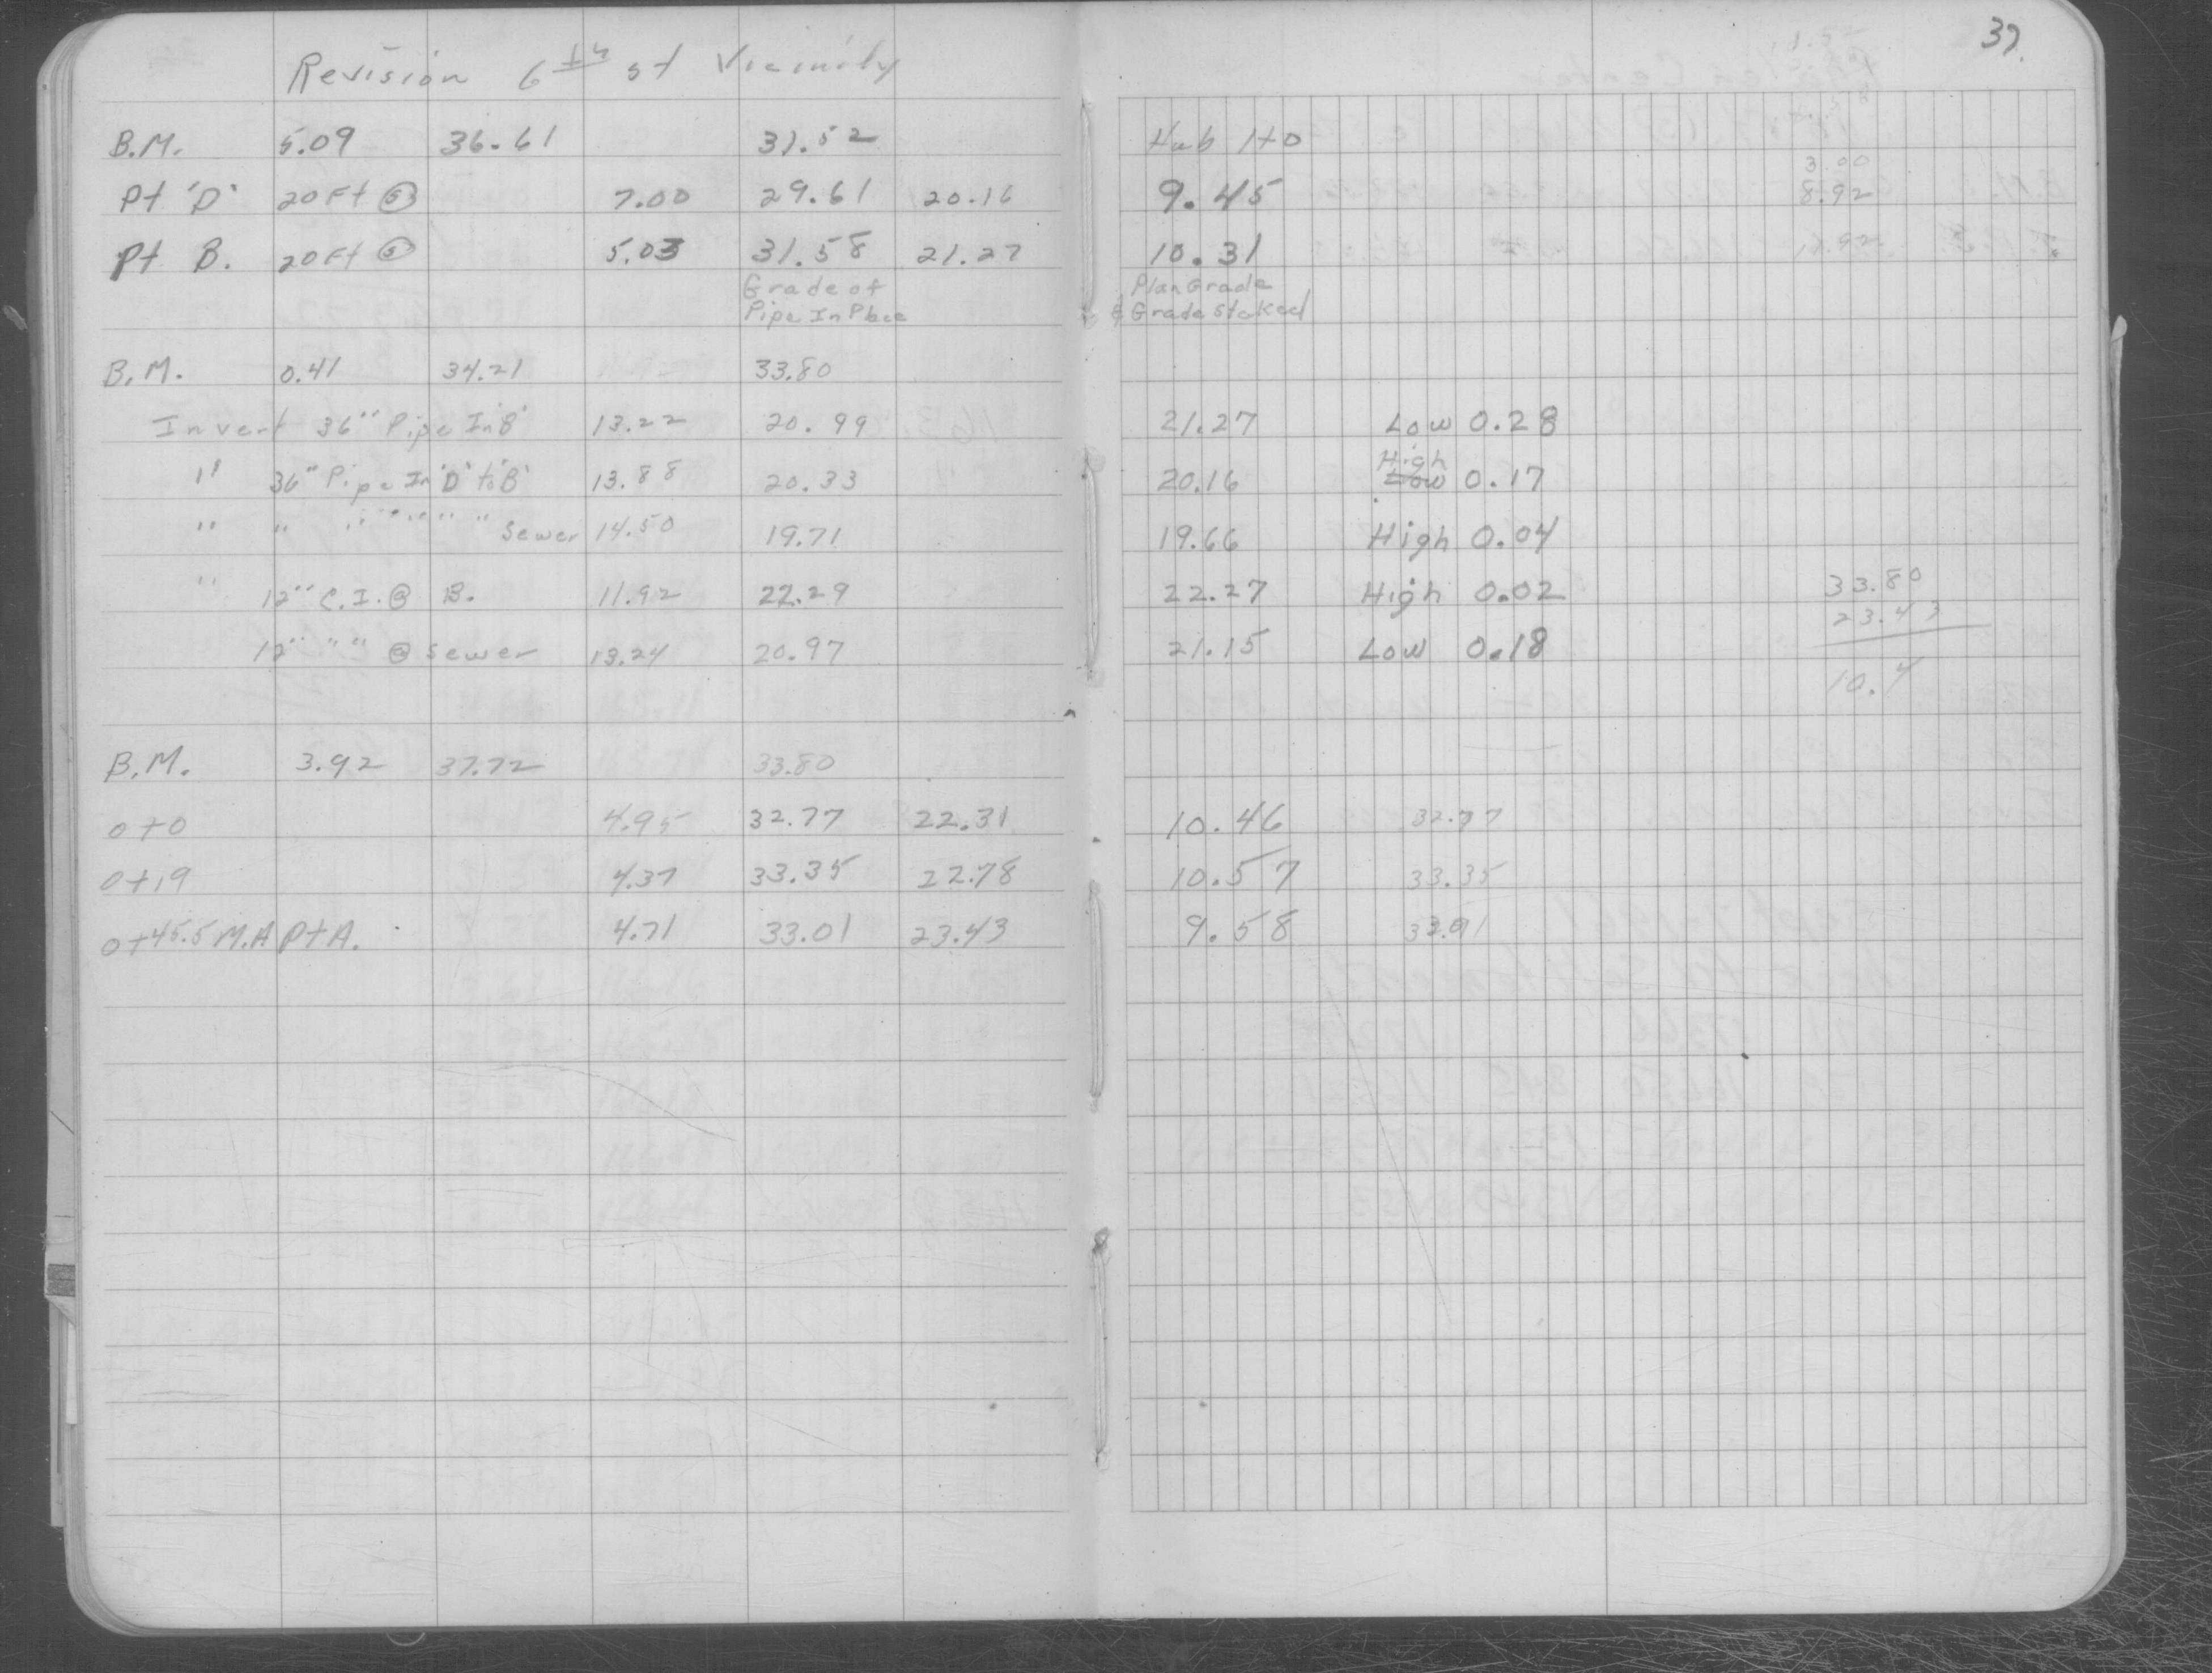 37.
Revision 6th st Vicinity
B.M. 5.09 36.61 31.52 Hub 1+0
3.00
Pt 'D' 20 Ft 7.00 29.61 20.16 9.45 8.92
Pt B. 20 Ft 5.03 31.58 21.27 10.31
Grade of Plan Grade
Pipe In Place & Grade Staked
B.M. 0.41 34.21 33.80
Invert 36" Pipe In 'B' 13.22 20.99 21.27 Low 0.28
High
" 36" Pipe In 'D' to 'B' 13.88 20.33 20.16 Low 0.17
" " " " " " " Sewer 14.50 19.71 19.66 High 0.04
" 12" C.I. @ B. 11.92 22.29 22.27 High 0.02 33.80
23.43
12" " " @ Sewer 13.24 20.97 21.15 Low 0.18
10.4
B.M. 3.92 37.72 33.80
0+0 4.95 32.77 22.31 10.46 32.77
0+19 4.37 33.35 22.78 10.57 33.35
0+45.5 M.A Pt A. 4.71 33.01 23.43 9.58